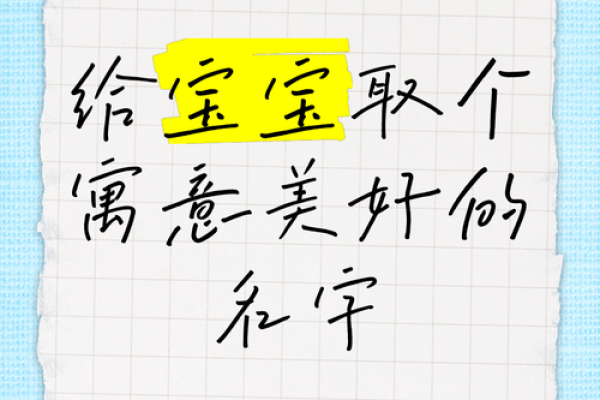 给宝宝取个
寓意美好的
名字